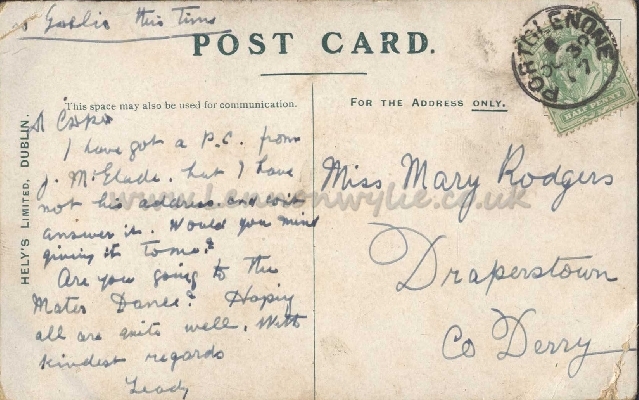 Gaelic this Time
POST CARD.
PORTGLENONE
HALFPENNY
This space may also be used for communication.
FOR THE ADDRESS ONLY.
HELY'S LIMITED, DUBLIN.
A Cara
I have got a P.C. from
J. McGlade. but I have
not his address and can't
answer it. Would you mind
giving it to me?
Are you going to the
Mater Dance? Hoping
all are quite well. With
kindest regards
Miss Mary Rodgers
Draperstown
Co Derry
www.lennonwylie.co.uk